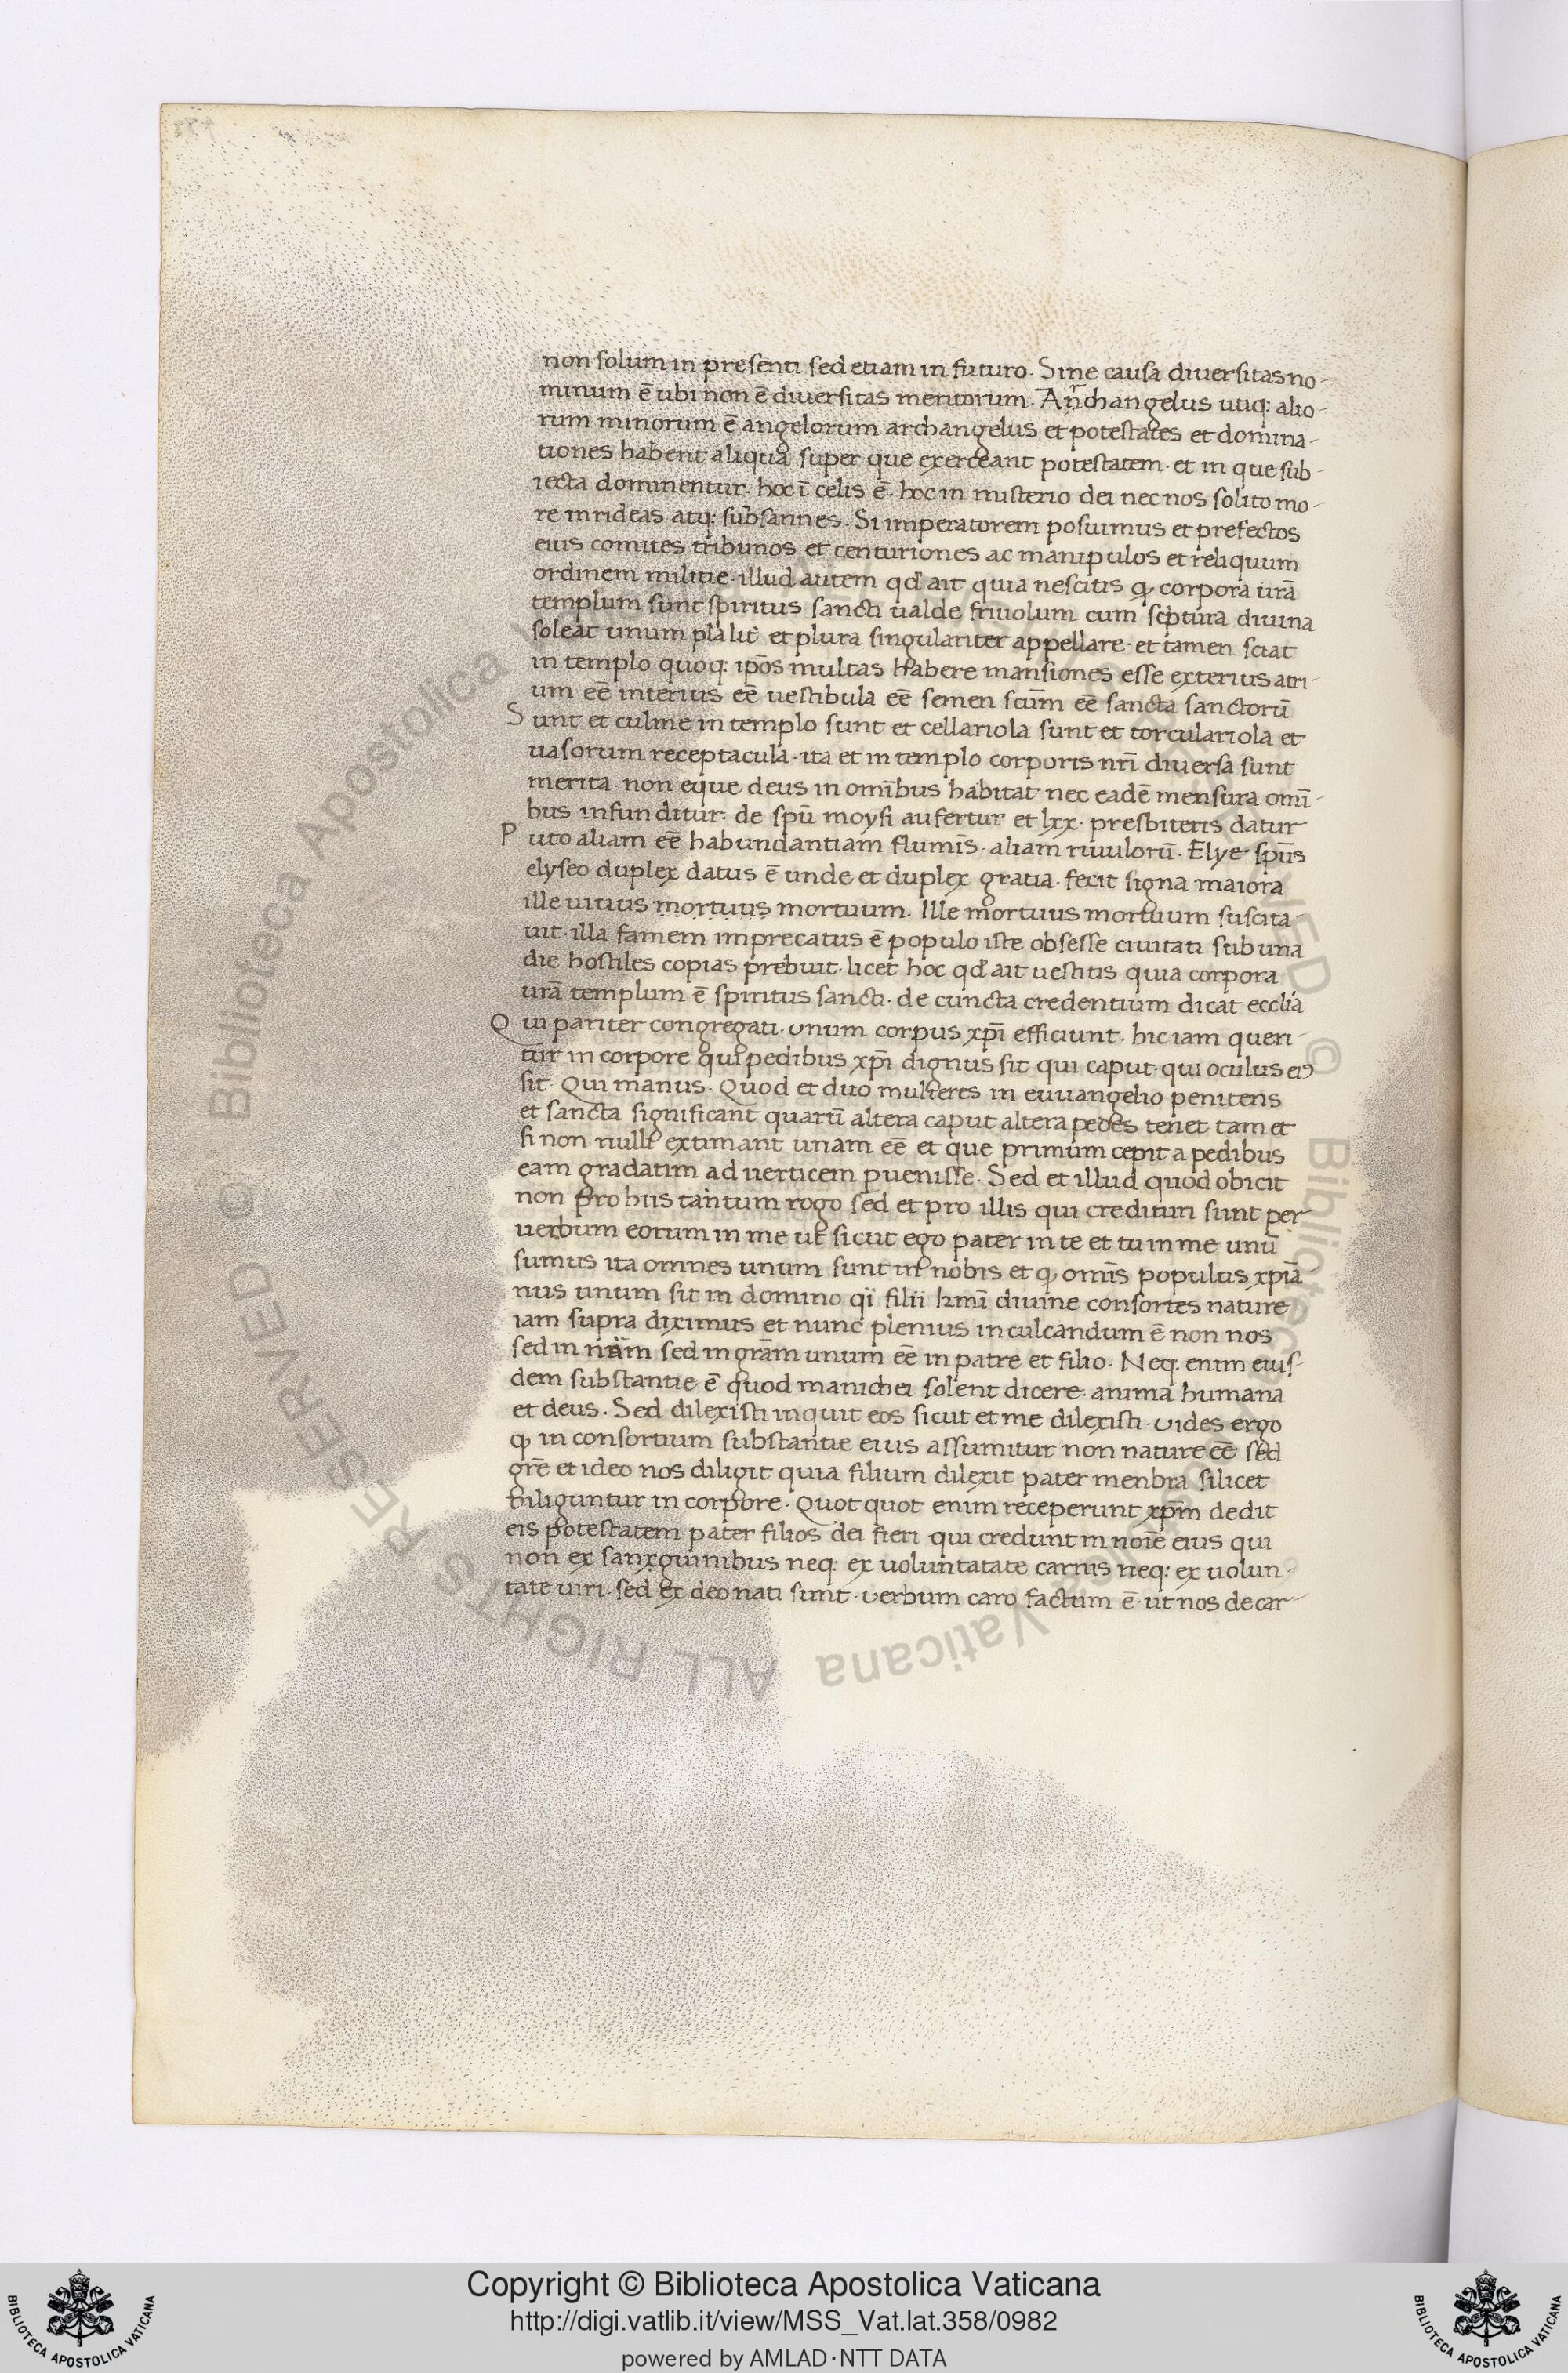 non solum in presenti sed etiam in futuro. Sine causa diuersitas no-
minum ē ubi non ē diuersitas meritorum. Archangelus utiq: alio-
rum minorum ē angelorum archangelus et potestates et domina-
tiones habent aliqua super que exerceant potestatem. et in que sub-
iecta dominentur. hoc ī celis ē. hoc in misterio dei nec nos solito mo-
re inrideas atq: subsannes. Si imperatorem posuimus et prefectos
eius comites tribunos et centuriones ac manipulos et reliquum
ordinem militie. illud autem qd' ait quia nescitis ꝙ corpora urā
templum sunt spiritus sancti ualde friuolum cum scptura diuina
soleat unum pla lit' et plura singulariter appellare. et tamen sciat
in templo quoq: ipōs multas habere mansiones esse exterius atri-
um eē interius eē uestibula eē semen scūm eē sancta sanctorū
Sunt et culine in templo sunt et cellariola sunt et torculariola et
uasorum receptacula. ita et in templo corporis nrī diuersa sunt
merita. non eque deus in omībus habitat nec eadē mensura omī-
bus infunditur. de spū moysi aufertur et lxx. presbiteris datur
Puto aliam eē habundantiam flumīs. aliam riuulorū. Elye spūs
elyseo duplex datus ē unde et duplex gratia. fecit signa maiora
ille uiuus mortuus mortuum. Ille mortuus mortuum suscita-
uit. illa famem imprecatus ē populo iste obsesse ciuitati sub una
die hostiles copias prebuit. licet hoc qd' ait uestitis quia corpora
urā templum ē spiritus sancti. de cuncta credentium dicat ecclīa
Qui pariter congregati. unum corpus xpī efficiunt. hic iam queri-
tur in corpore qui pedibus xpī dignus sit qui caput. qui oculus eiꝰ
sit. Qui manus. Quod et duo mulieres in euuangelio penitens
et sancta significant quarū altera caput altera pedes tenet tam et
si non nulli extimant unam eē et que primum cepit a pedibus
eam gradatim ad uerticem puenisse. Sed et illud quod obicit
non pro hiis tantum rogo sed et pro illis qui credituri sunt per
uerbum eorum in me ut sicut ego pater in te et tu in me unū
sumus ita omnes unum sunt in nobis et ꝙ omīs populus xpīa
nus unum sit in domino qī filii kmī diuine consortes nature
iam supra diximus et nunc plenius inculcandum ē non nos
sed in nām sed in grām unum eē in patre et filio. Neq: enim eius-
dem substantie ē quod manichei solent dicere. anima humana
et deus. Sed dilexisti inquit eos sicut et me dilexisti. uides ergo
ꝙ in consortium substantie eius assumitur non nature eē sed
grē et ideo nos diligit quia filium dilexit pater menbra silicet
diliguntur in corpore. Quot quot enim receperunt xpm dedit
eis potestatem pater filios dei fieri qui credunt in noīe eius qui
non ex sanxguinibus neq: ex uoluntatate carnis neq: ex uolun-
tate uiri. sed ex deo nati sunt. uerbum caro factum ē. ut nos de car-
Copyright © Biblioteca Apostolica Vaticana
http://digi.vatlib.it/view/MSS_Vat.lat.358/0982
powered by AMLAD·NTT DATA